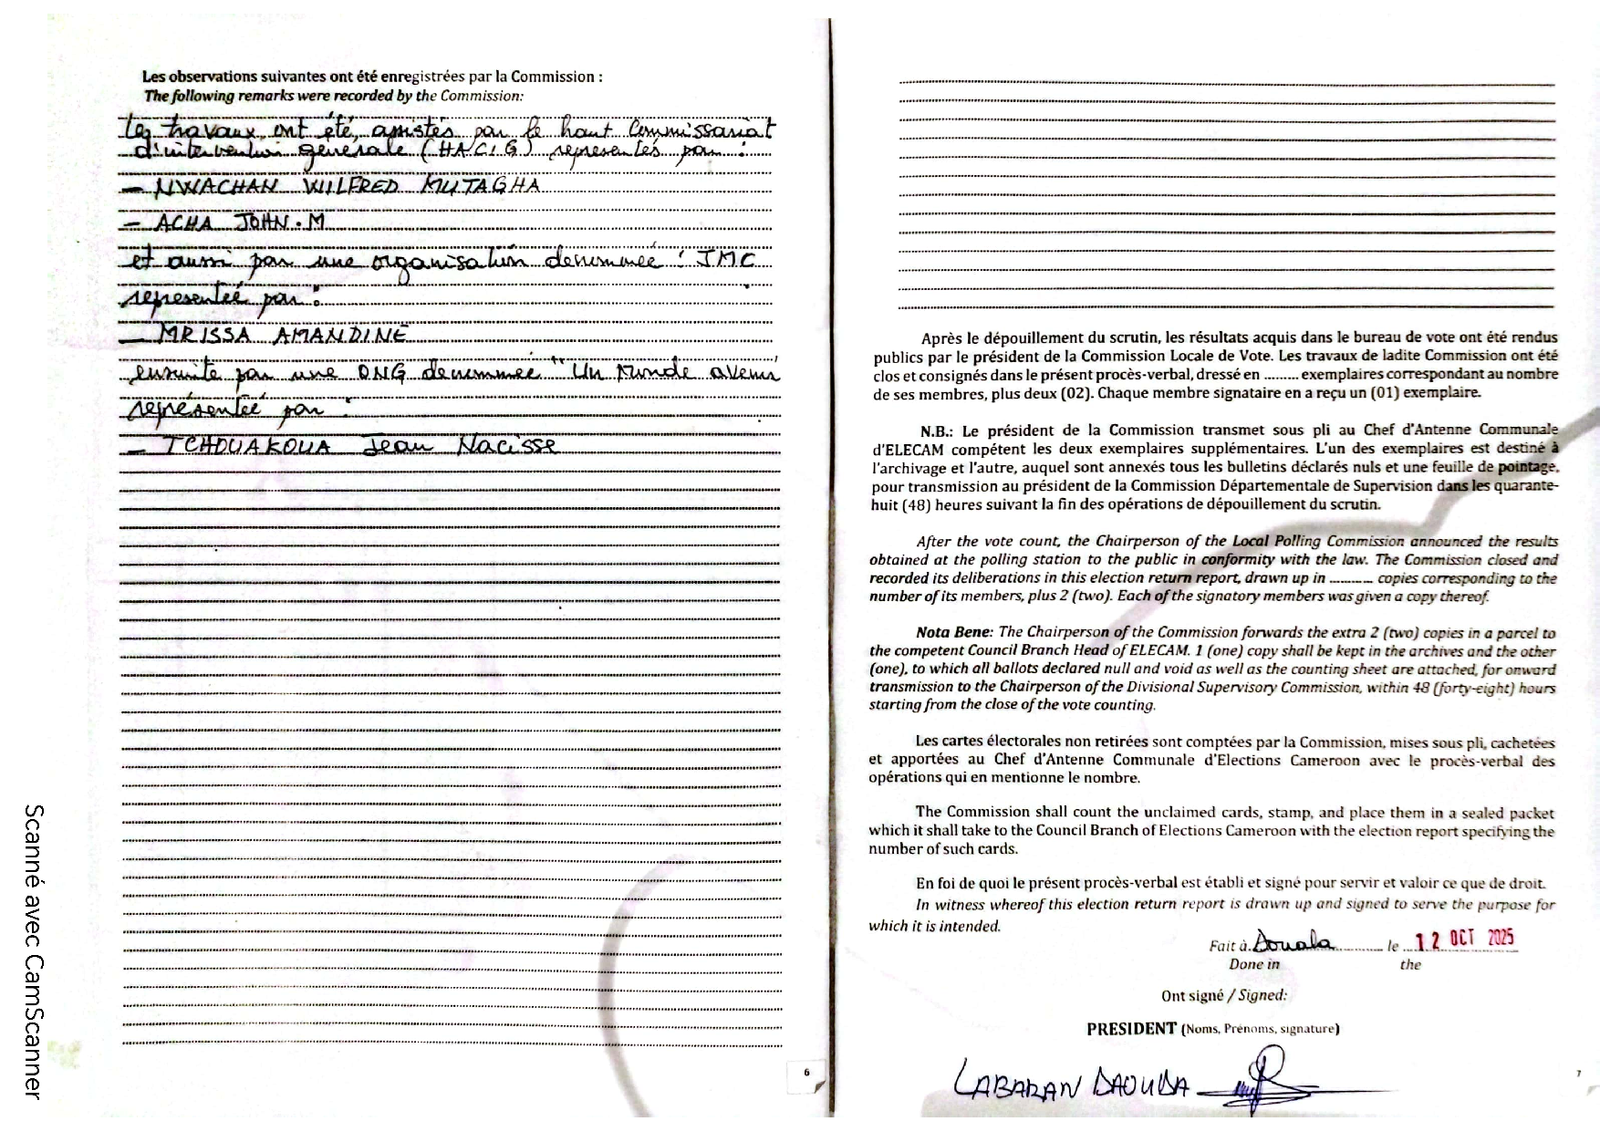 Les observations suivantes ont été enregistrées par la Commission :
The following remarks were recorded by the Commission:
Les travaux ont été assistés par le haut Commissariat
d'intervention générale (HACIG) representés par :
- NWACHAN WILFRED MUTAGHA
- ACHA JOHN.M
et aussi par une organisation denommée : JMC
representée par :
- MRISSA AMANDINE
ensuite par une ONG denommée "Un Monde avenir
représentée par :
- TCHOUAKOUA Jean Nacisse
6
Scanné avec CamScanner
Après le dépouillement du scrutin, les résultats acquis dans le bureau de vote ont été rendus
publics par le président de la Commission Locale de Vote. Les travaux de ladite Commission ont été
clos et consignés dans le présent procès-verbal, dressé en .......... exemplaires correspondant au nombre
de ses membres, plus deux (02). Chaque membre signataire en a reçu un (01) exemplaire.
N.B.: Le président de la Commission transmet sous pli au Chef d'Antenne Communale
d'ELECAM compétent les deux exemplaires supplémentaires. L'un des exemplaires est destiné à
l'archivage et l'autre, auquel sont annexés tous les bulletins déclarés nuls et une feuille de pointage,
pour transmission au président de la Commission Départementale de Supervision dans les quarante-
huit (48) heures suivant la fin des opérations de dépouillement du scrutin.
After the vote count, the Chairperson of the Local Polling Commission announced the results
obtained at the polling station to the public in conformity with the law. The Commission closed and
recorded its deliberations in this election return report, drawn up in ............ copies corresponding to the
number of its members, plus 2 (two). Each of the signatory members was given a copy thereof.
Nota Bene: The Chairperson of the Commission forwards the extra 2 (two) copies in a parcel to
the competent Council Branch Head of ELECAM. 1 (one) copy shall be kept in the archives and the other
(one), to which all ballots declared null and void as well as the counting sheet are attached, for onward
transmission to the Chairperson of the Divisional Supervisory Commission, within 48 (forty-eight) hours
starting from the close of the vote counting.
Les cartes électorales non retirées sont comptées par la Commission, mises sous pli, cachetées
et apportées au Chef d'Antenne Communale d'Elections Cameroon avec le procès-verbal des
opérations qui en mentionne le nombre.
The Commission shall count the unclaimed cards, stamp, and place them in a sealed packet
which it shall take to the Council Branch of Elections Cameroon with the election report specifying the
number of such cards.
En foi de quoi le présent procès-verbal est établi et signé pour servir et valoir ce que de droit.
In witness whereof this election return report is drawn up and signed to serve the purpose for
which it is intended.
Fait à Douala le 12 OCT 2025
Done in the
Ont signé / Signed:
PRESIDENT (Noms, Prénoms, signature)
LABARAN DAOUDA
7